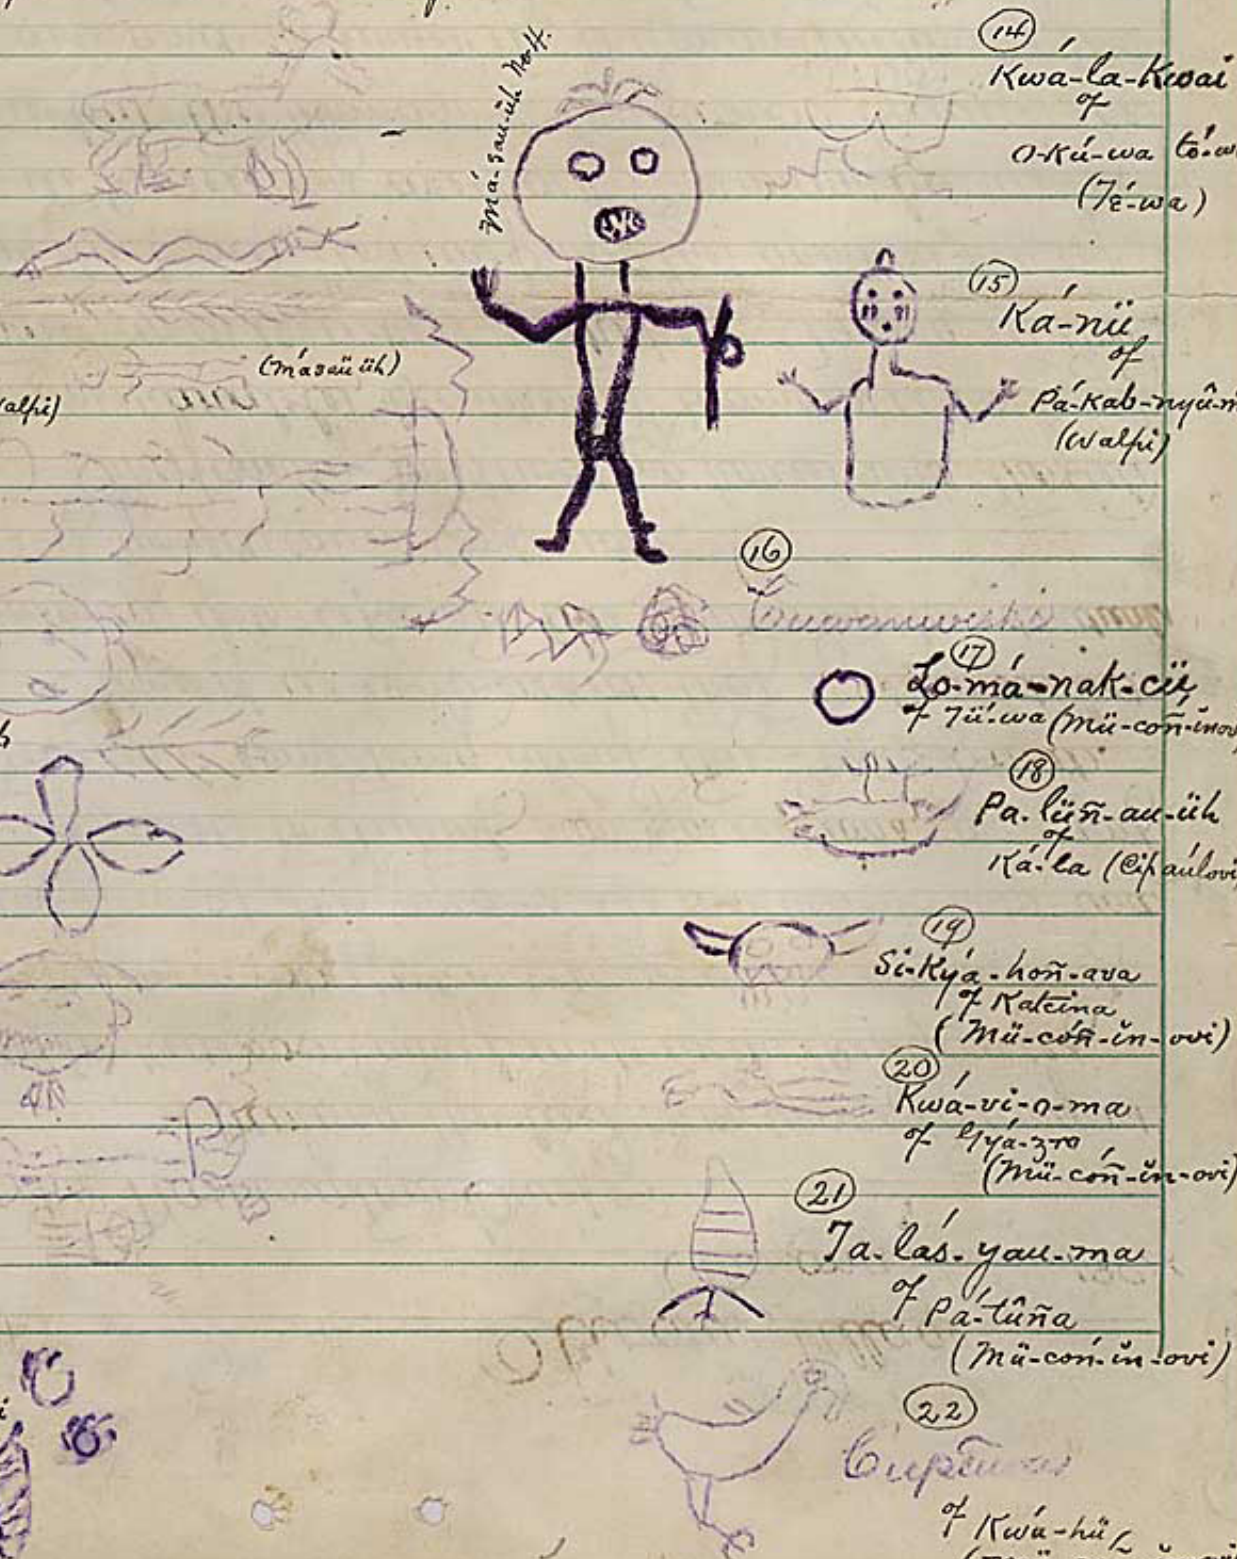 Má-sau-üh Nott.
(14)
Kwá-la-Kwai
of
O-Kú-wa tó-w
(Té-wa)
(15)
Ká-nü
of
Pá-Kab-nyû-m
(Walpi)
(Másaüüh)
alpi)
(16)
(17)
Lo-má-nak-cü
of Tü-wa (Mü-coñ-inov
(18)
Pa-lüñ-au-üh
of
Ká-la (Cipaúlovi
(19)
Si-Kyá-hoñ-ava
of Katcina
(Mü-cóñ-ĭn-ovi)
(20)
Kwá-vi-o-ma
of Gyá-zro
(Mü-cóñ-ĭn-ovi)
(21)
Ta-lás-yau-ma
of Pá-tûña
(Mü-cóñ-ĭn-ovi)
(22)
of Kwá-hü